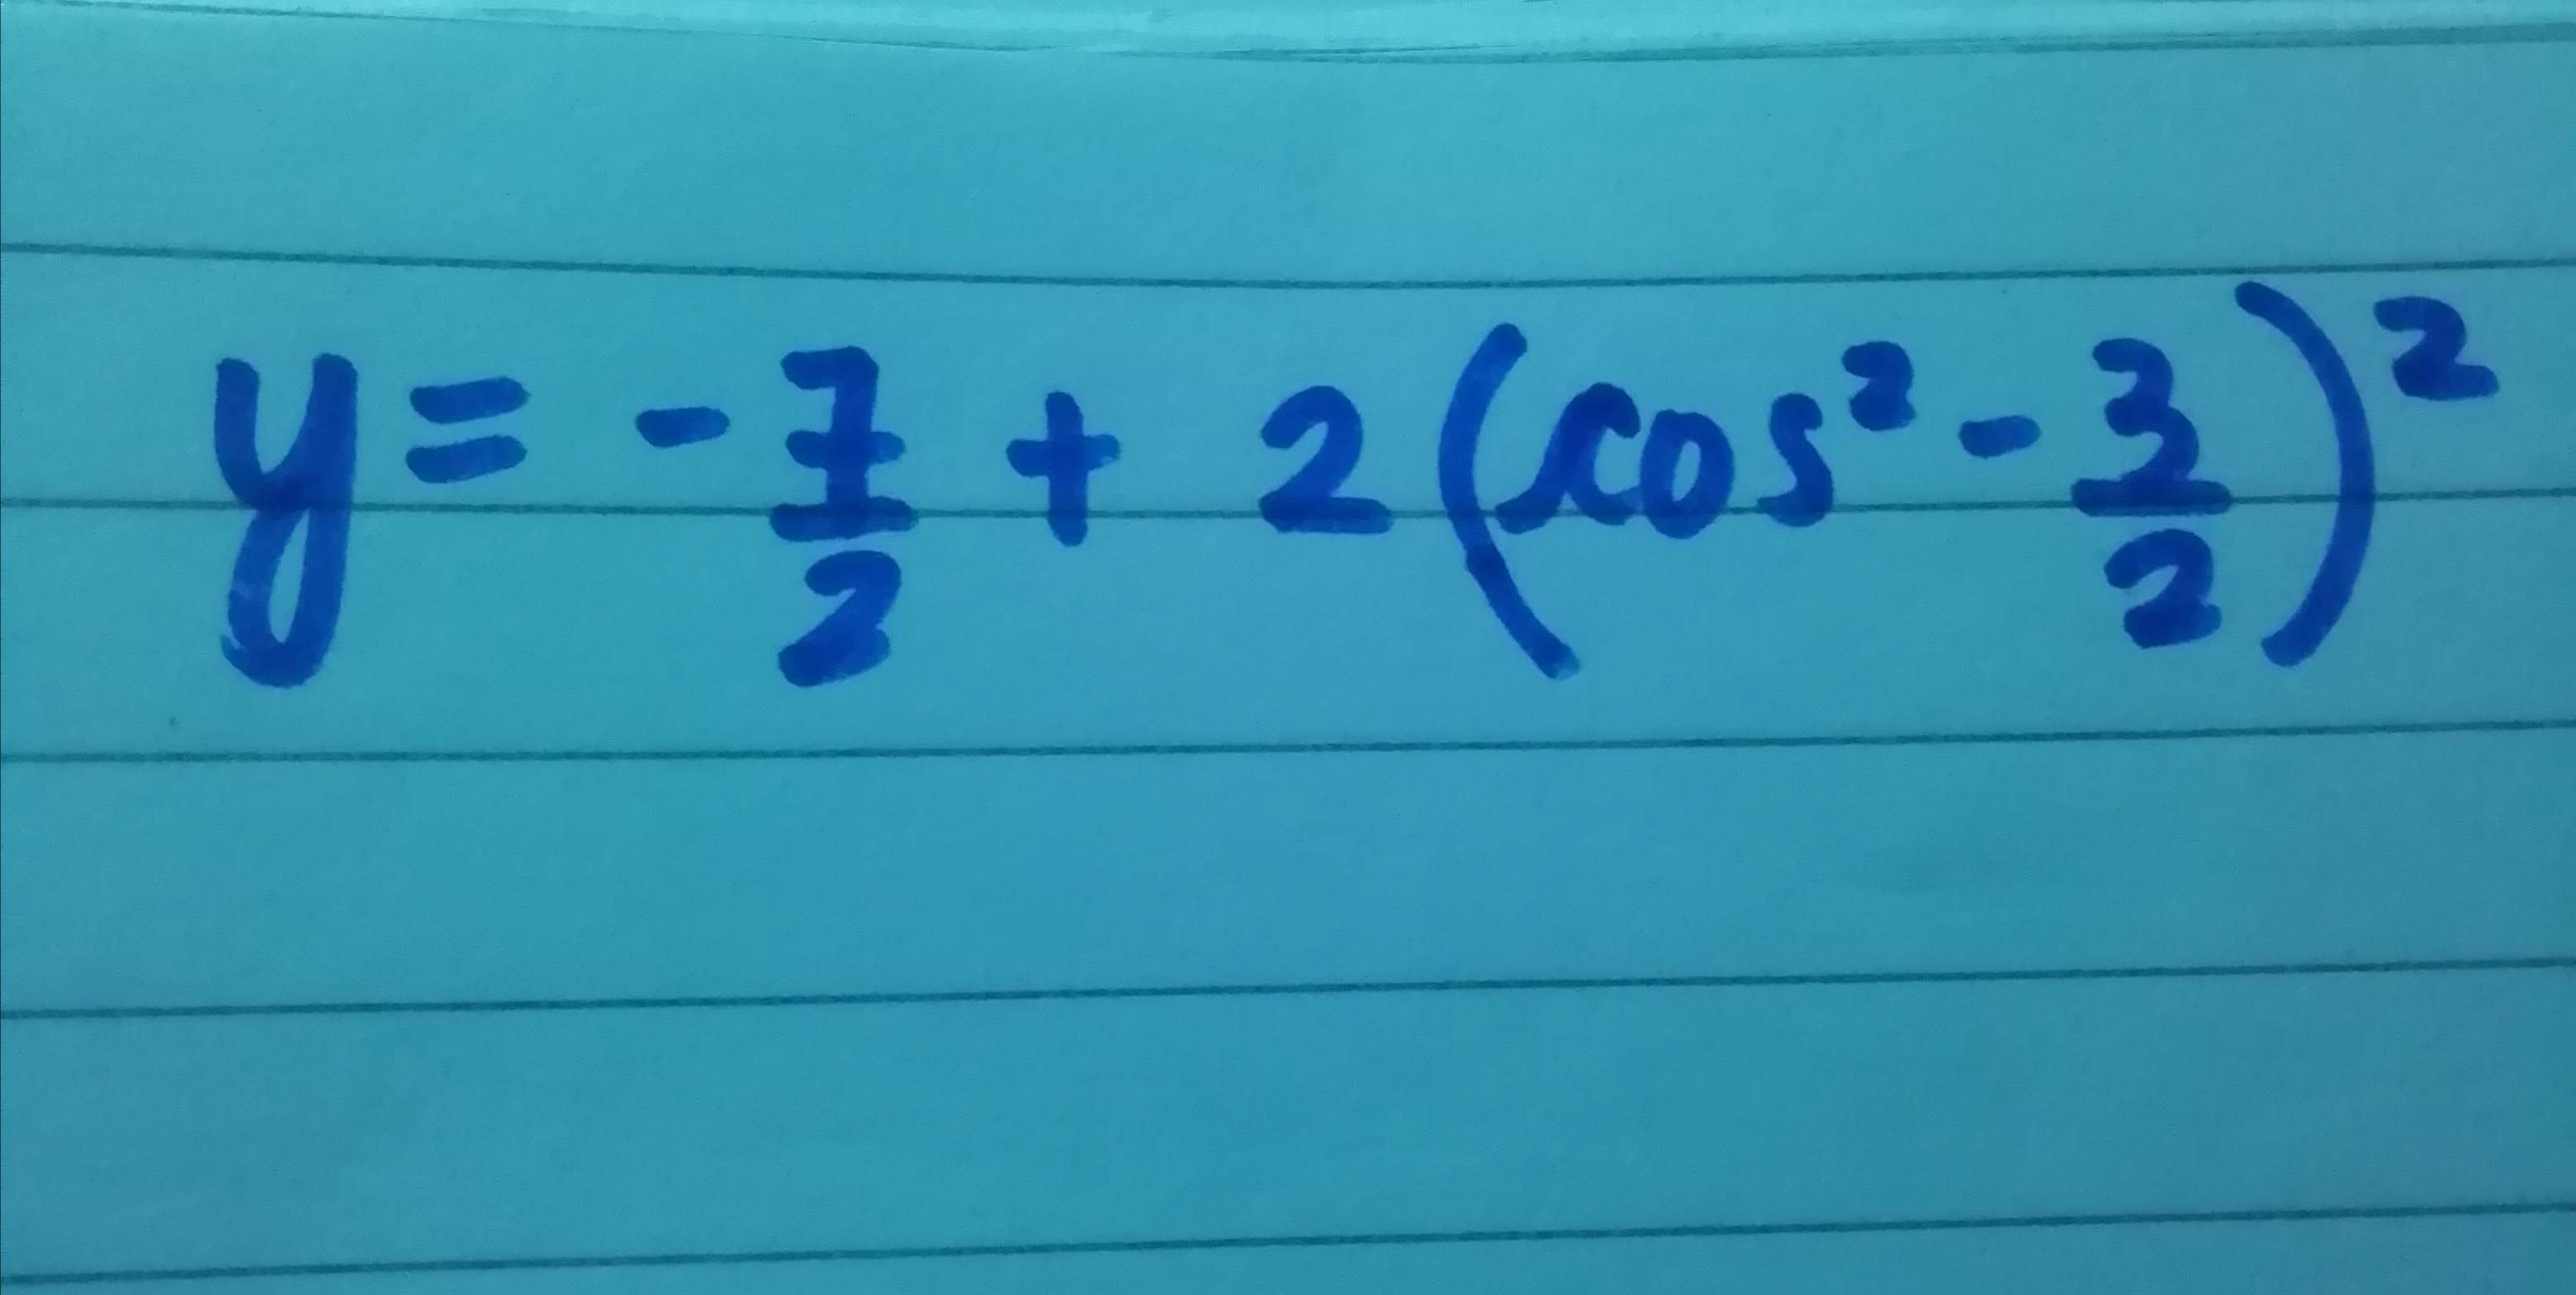 y = - 7/2 + 2 (cos² - 3/2)²